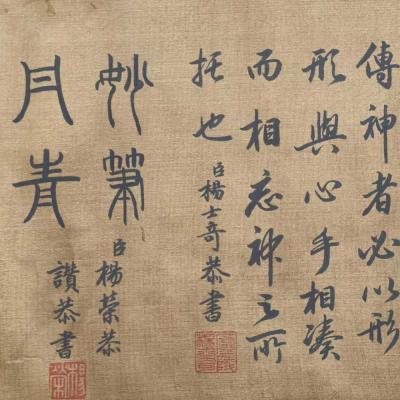 傳神者必以形
形與心手相湊
而相忘神之所
托也 臣楊士奇恭書
妙筆 臣楊榮恭
丹青 讚恭書
楊榮